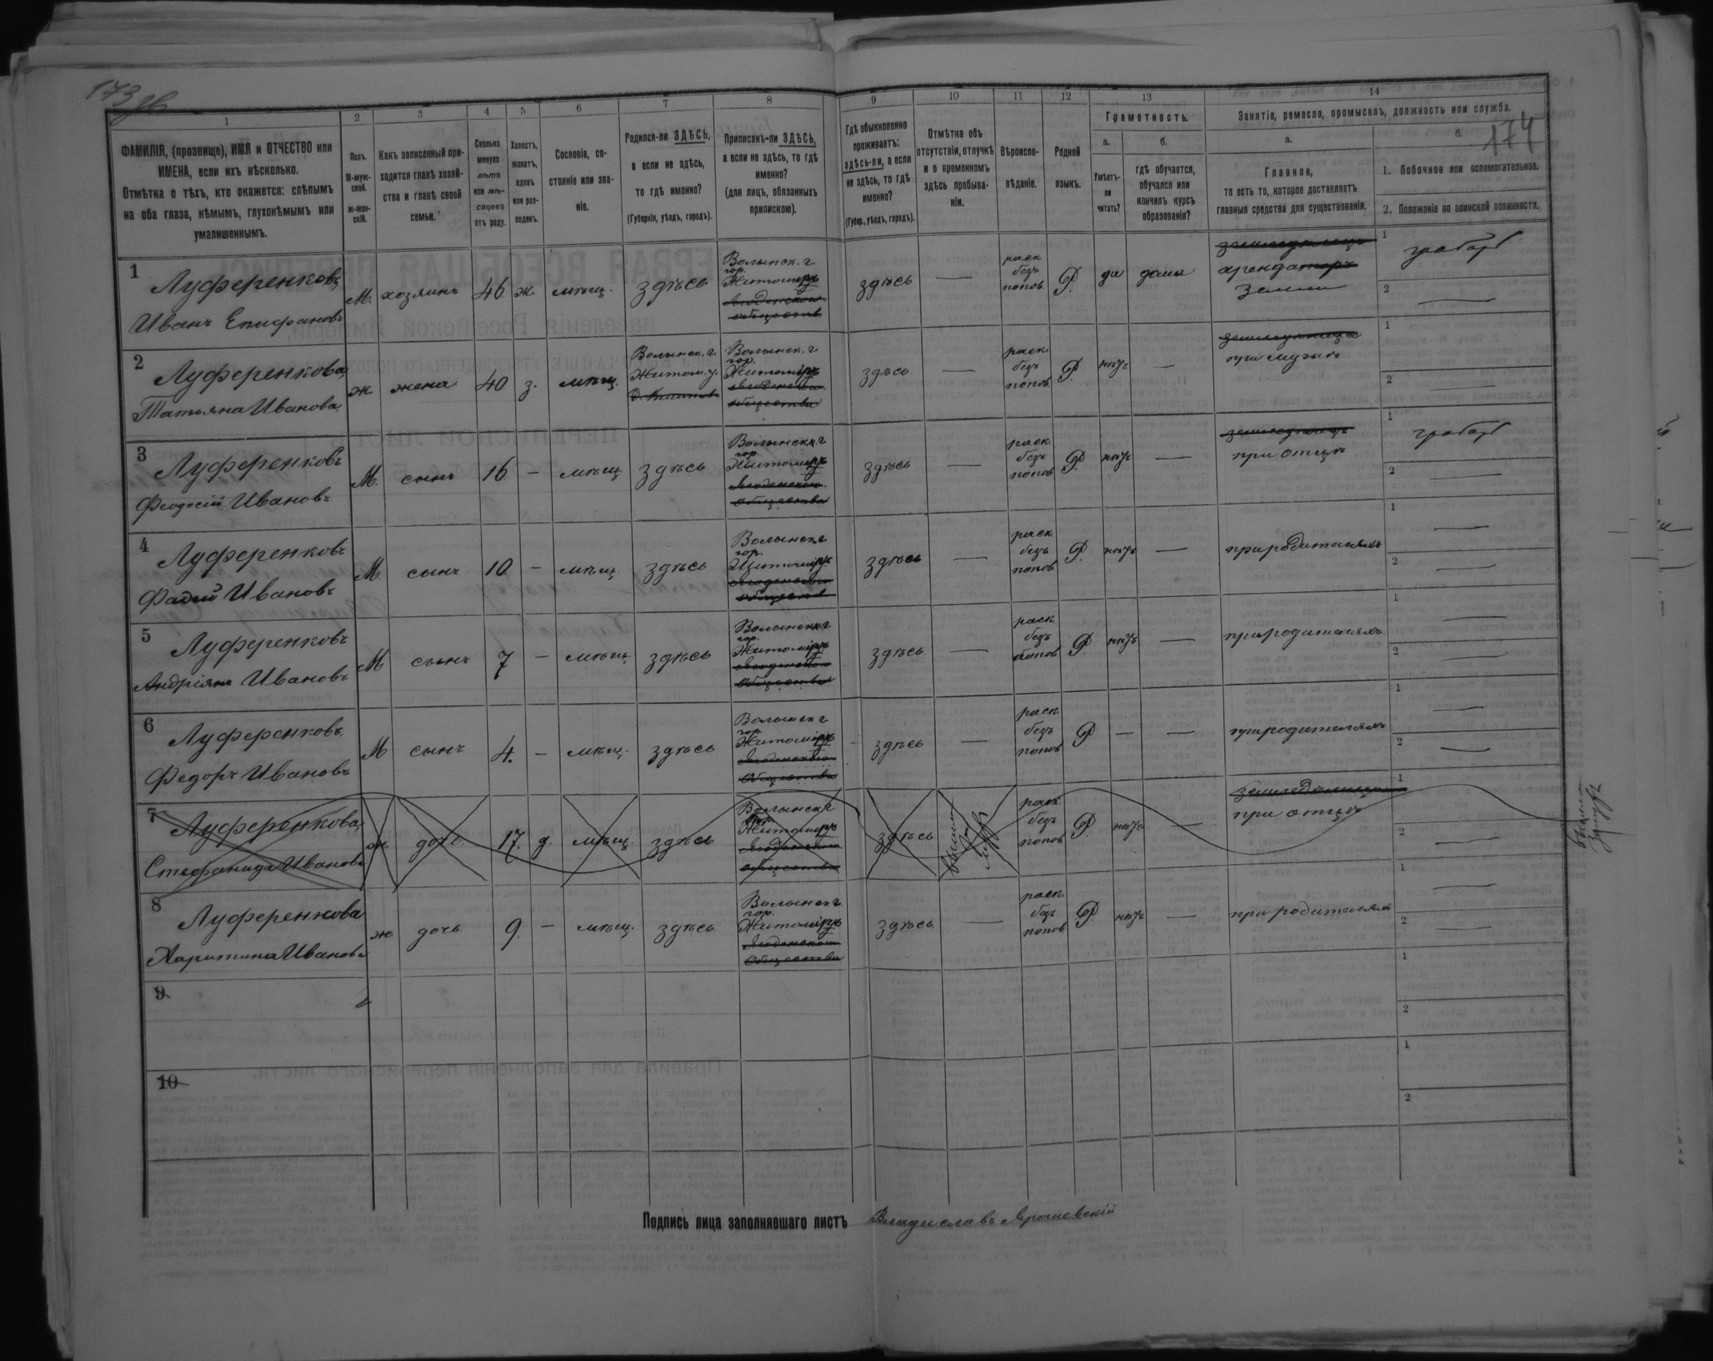 173 об
174
1 2 3 4 5 6 7 8 9 10 11 12 13 14
ФАМИЛІЯ, (прозвище), ИМЯ и ОТЧЕСТВО или
ИМЕНА, если ихъ нѣсколько.
Отмѣтка о тѣхъ, кто окажется: слѣпымъ
на оба глаза, нѣмымъ, глухонѣмымъ или
умалишеннымъ.
Полъ.
М-муж-
ской.
ж-жен-
скій.
Какъ записанный при-
ходится главѣ хозяй-
ства и главѣ своей
семьи.
Сколько
минуло
лѣтъ
или мѣ-
сяцевъ
отъ роду.
Холостъ,
женатъ,
вдовъ
или раз-
веденъ.
Сословіе, со-
стояніе или зва-
ніе.
Родился-ли ЗДѢСЬ,
а если не здѣсь,
то гдѣ именно?
(Губернія, уѣздъ, городъ).
Приписанъ-ли ЗДѢСЬ,
а если не здѣсь, то гдѣ
именно?
(для лицъ, обязанныхъ
припискою).
Гдѣ обыкновенно
проживаетъ:
здѣсь-ли, а если
не здѣсь, то гдѣ
именно?
(Губер., уѣздъ, городъ).
Отмѣтка объ
отсутствіи, отлучкѣ
и о временномъ
здѣсь пребыва-
ніи.
Вѣроиспо-
вѣданіе.
Родной
языкъ.
Грамотность.
а.
Умѣетъ-
ли
читать?
б.
гдѣ обучается,
обучался или
кончилъ курсъ
образованія?
Занятія, ремесло, промыселъ, должность или служба.
а.
Главное,
то есть то, которое доставляетъ
главныя средства для существованія.
б.
1. Побочное или вспомогательное.
2. Положеніе по воинской повинности.
1 Луференковъ
Иванъ Епифановъ
М. хозяинъ 46 ж мѣщ. здѣсь
Волынск. г
гор.
Житомиръ
общества
здѣсь — раск. безъ попов. Р. да дома
земледѣлецъ
арендаторъ
земли
1 грабарь
2 —
2 Луференкова
Татьяна Иванова
ж. жена 40 з. мѣщ.
Волынск. г
Житом. у.
Волынск. г
гор.
Житомиръ
общества
здѣсь — раск. безъ попов Р. нѣтъ —
при мужѣ
1
2 —
3 Луференковъ
Феодосій Ивановъ
М. сынъ 16 — мѣщ здѣсь
Волынск г
гор.
Житомиръ
общества
здѣсь — раск. безъ попов Р. нѣтъ —
земледѣлецъ
при отцѣ
1 грабарь
2 —
4 Луференковъ
Фадей Ивановъ
М сынъ 10 — мѣщ здѣсь
Волынск г
гор.
Житомиръ
общества
здѣсь — раск безъ попов Р. нѣтъ —
при родителяхъ
1 —
2 —
5 Луференковъ
Андріянъ Ивановъ
М сынъ 7 — мѣщ здѣсь
Волынск г
гор.
Житомиръ
общества
здѣсь — раск. безъ попов Р нѣтъ —
при родителяхъ
1 —
2 —
6 Луференковъ
Федоръ Ивановъ
М сынъ 4. — мѣщ. здѣсь
Волынск г
гор.
Житомиръ
общества
здѣсь — раск безъ попов Р — —
при родителяхъ
1 —
2 —
7 Луференкова
Стефанида Иванова
ж дочь 17. д. мѣщ. здѣсь
Волынск г
гор.
Житомиръ
общества
здѣсь вышла замужъ раск. безъ попов Р. нѣтъ —
при отцѣ
1
2 —
вышла
замужъ
8 Луференкова
Харитина Иванова
ж дочь 9. — мѣщ. здѣсь
Волынск г
гор.
Житомиръ
общества
здѣсь — раск. безъ попов Р. нѣтъ —
при родителяхъ
1 —
2 —
9
1
2
10
1
2
Подпись лица заполнявшаго листъ Владиславъ